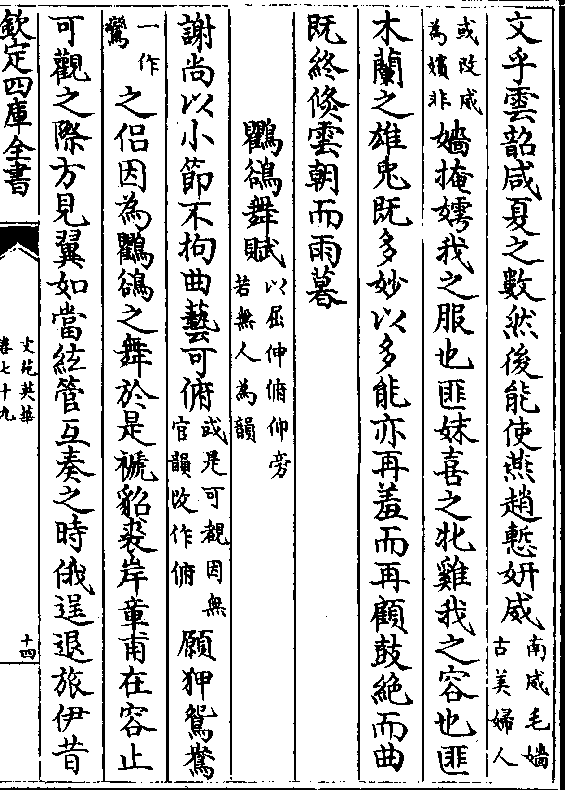 文乎雲韶咸夏之數然後能使燕趙慙妍威南威毛嬙古美婦人
或改威為嬪非嬙掩嫮我之服也匪妹喜之牝雞我之容也匪
木蘭之雄兎既多妙以多能亦再羞而再顧鼓絶而曲
既終倏雲朝而雨暮
鸜鵒舞賦以屈伸俯仰旁若無人為韻
謝尚以小節不拘曲藝可俯或是可觀因無官韻改作俯願狎鴛鷺
一作鸞之侣因為鸜鵒之舞於是褫貂裘岸章甫在容止
可觀之際方見翼如當絃管互奏之時俄逞退旅伊昔
欽定四庫全書
文苑英華
卷七十九
十四